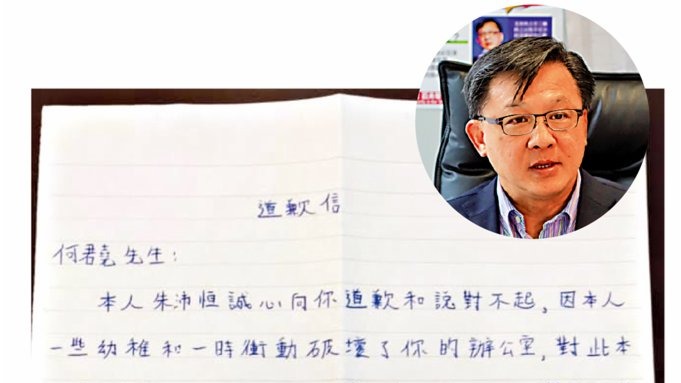 道歉信
何君堯先生：
本人朱沛恒誠心向你道歉和說對不起，因本人
一些幼稚和一時衝動破壞了你的辦公室，對此本